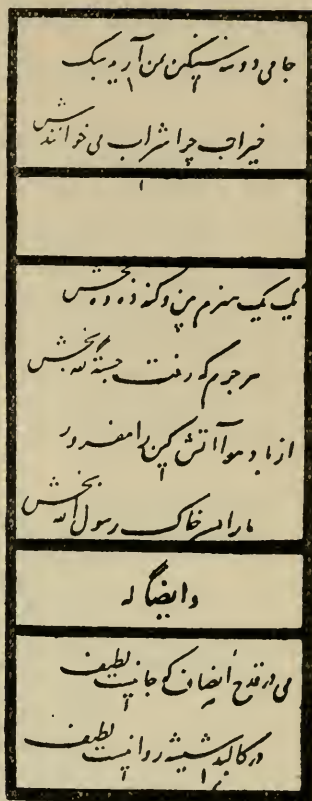 جامی دو سه سنگین بمن آرید سبک
خیراب چرا شراب می خوانندش
یک یک هنرم بین و گنه ده ده بخش
هر جرم که رفت حسبة لله بخش
از باد و هوا آتش کین را مفروز
ما را بسر خاک رسول الله بخش
وایضاً له
می در قدح انصاف که جانیست لطیف
در کالبد شیشه روانیست لطیف